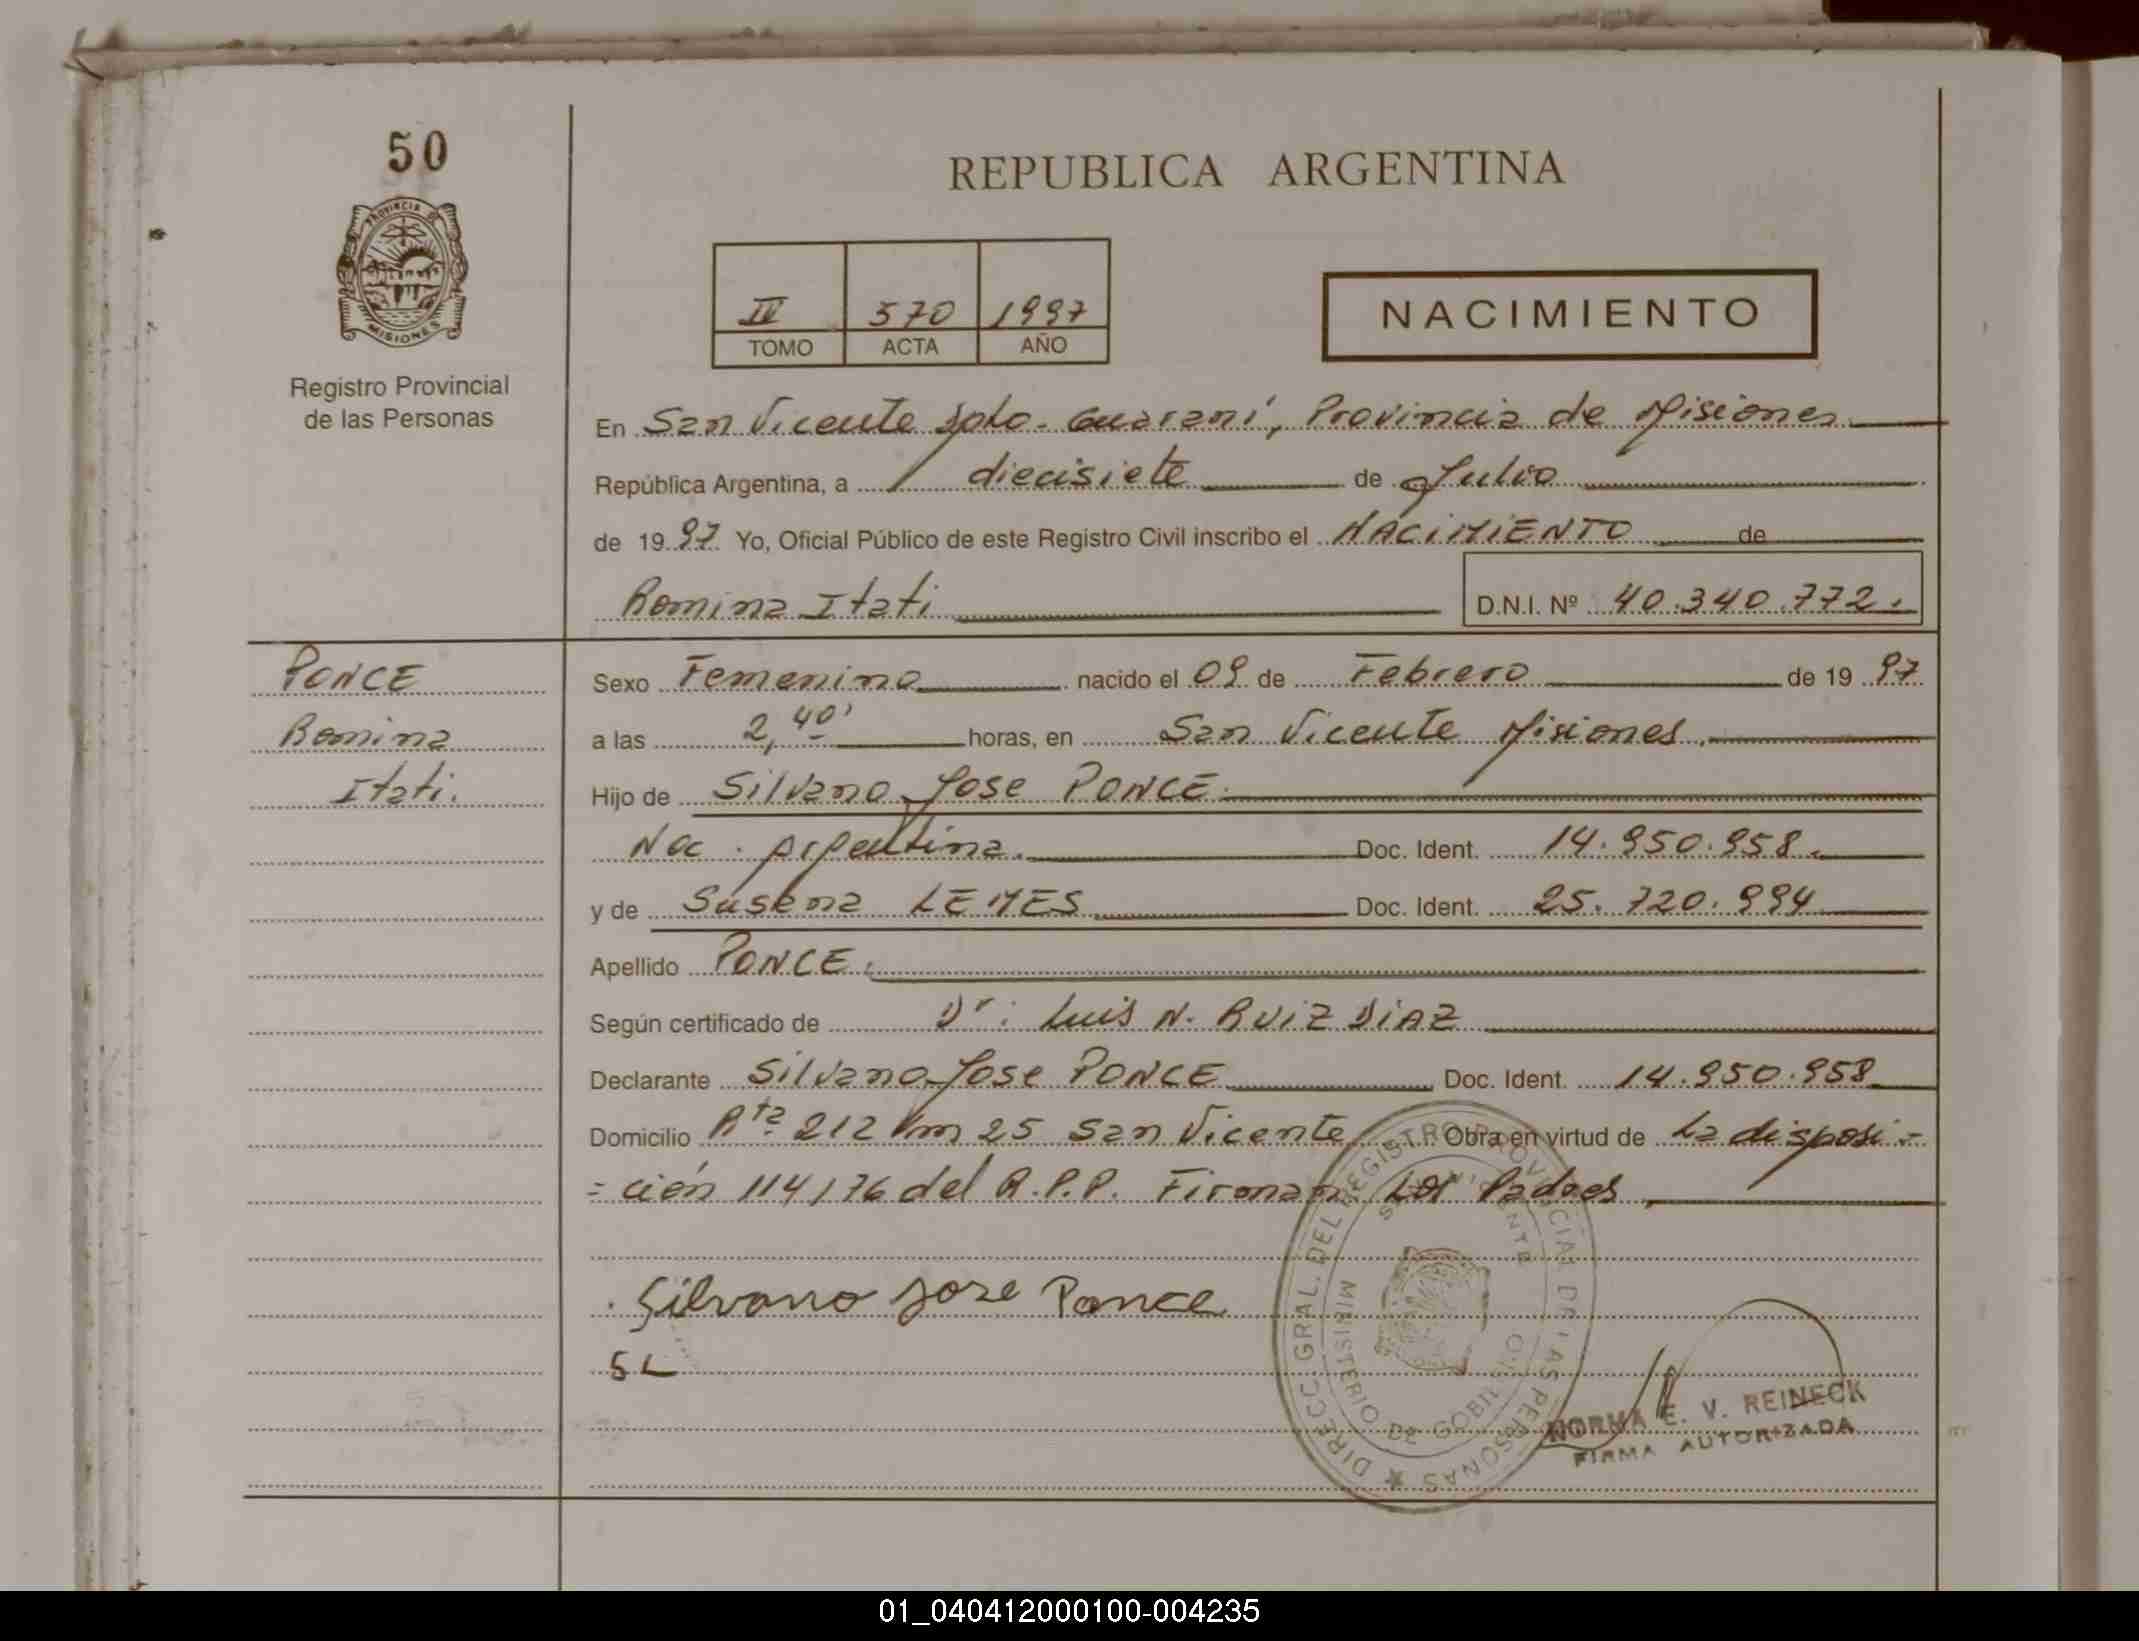 50
REPUBLICA ARGENTINA
PROVINCIA DE MISIONES
Registro Provincial
de las Personas
IV 570 1997
TOMO ACTA AÑO
NACIMIENTO
En San Vicente Dpto. Guaraní, Provincia de Misiones
República Argentina, a diecisiete de Julio
de 1997 Yo, Oficial Público de este Registro Civil inscribo el NACIMIENTO de
Romina Itati D.N.I. Nº 40.340.772.
PONCE
Romina
Itati.
Sexo Femenino nacido el 09 de Febrero de 1997
a las 2,40' horas, en San Vicente Misiones.
Hijo de Silvano Jose PONCE.
Nac. Argentina. Doc. Ident. 14.950.958.
y de Susana LEMES Doc. Ident. 25.720.994
Apellido PONCE.
Según certificado de Dr: Luis N. RUIZ DIAZ
Declarante Silvano Jose PONCE Doc. Ident. 14.950.958
Domicilio Rta 212 Km 25 San Vicente Obra en virtud de La disposi-
-ción 114/76 del R.P.P. Firman Los Padres
Silvano Jose Ponce
SL
DIRECC. GRAL. DEL REGISTRO PROVINCIAL DE LAS PERSONAS
MINISTERIO DE GOBIERNO
SAN VICENTE
NORMA E. V. REINECK
FIRMA AUTORIZADA
01_040412000100-004235